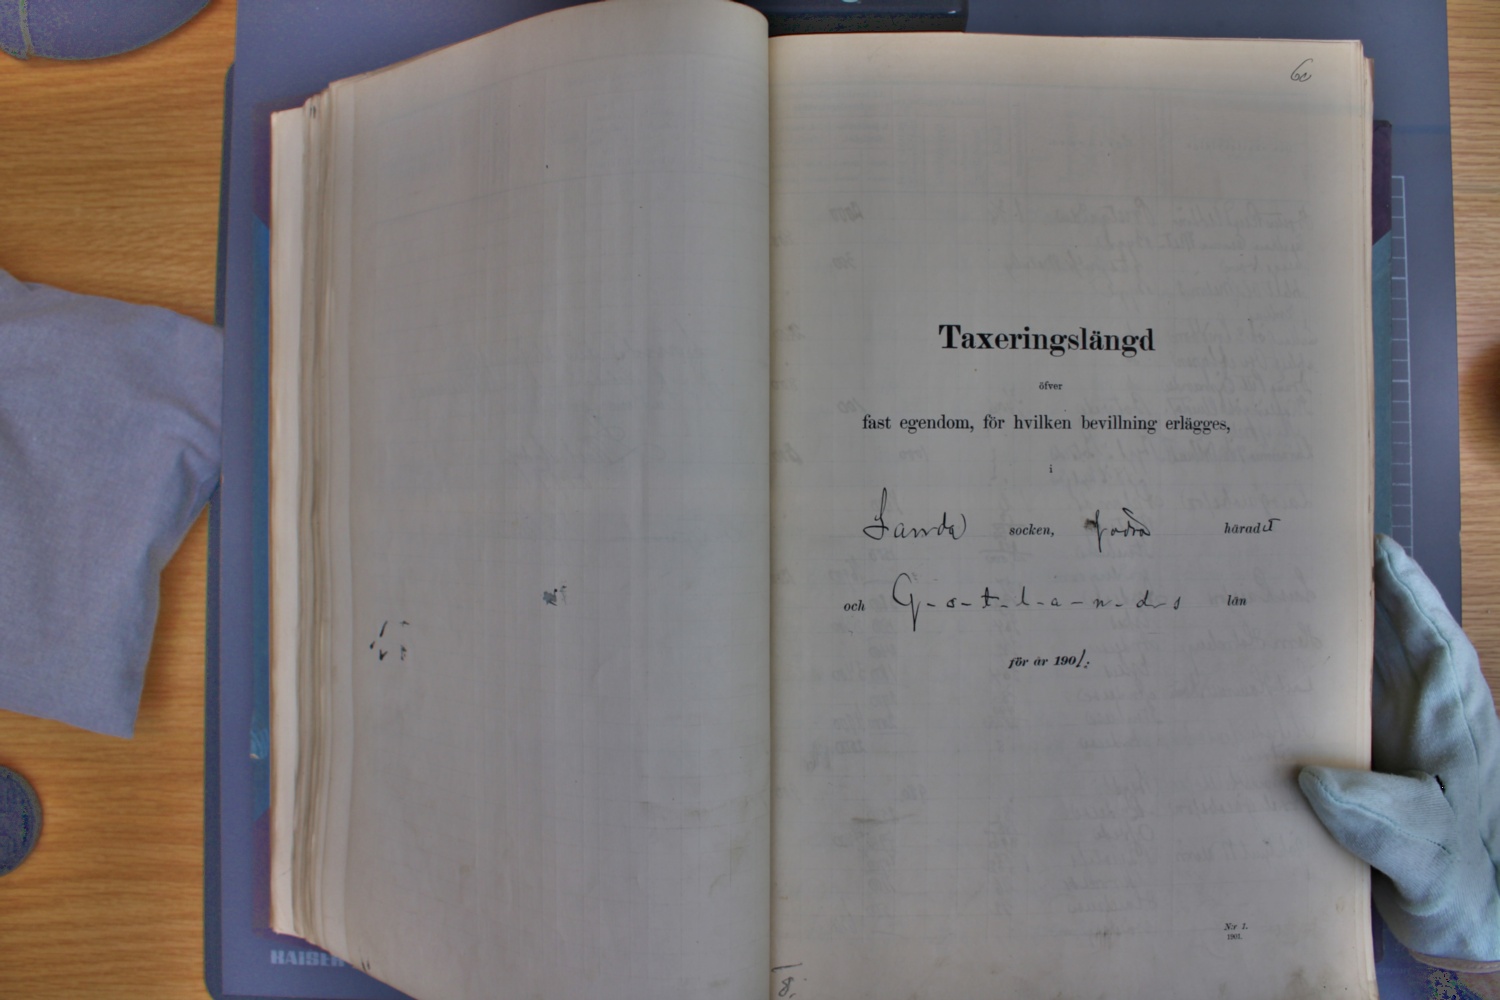 60
Taxeringslängd
öfver
fast egendom, för hvilken bevillning erlägges,
i
Sanda socken, Södra häradet
och G-o-t-l-a-n-d-s län
för år 1901.
N:r 1.
1901.
8.
HAISER